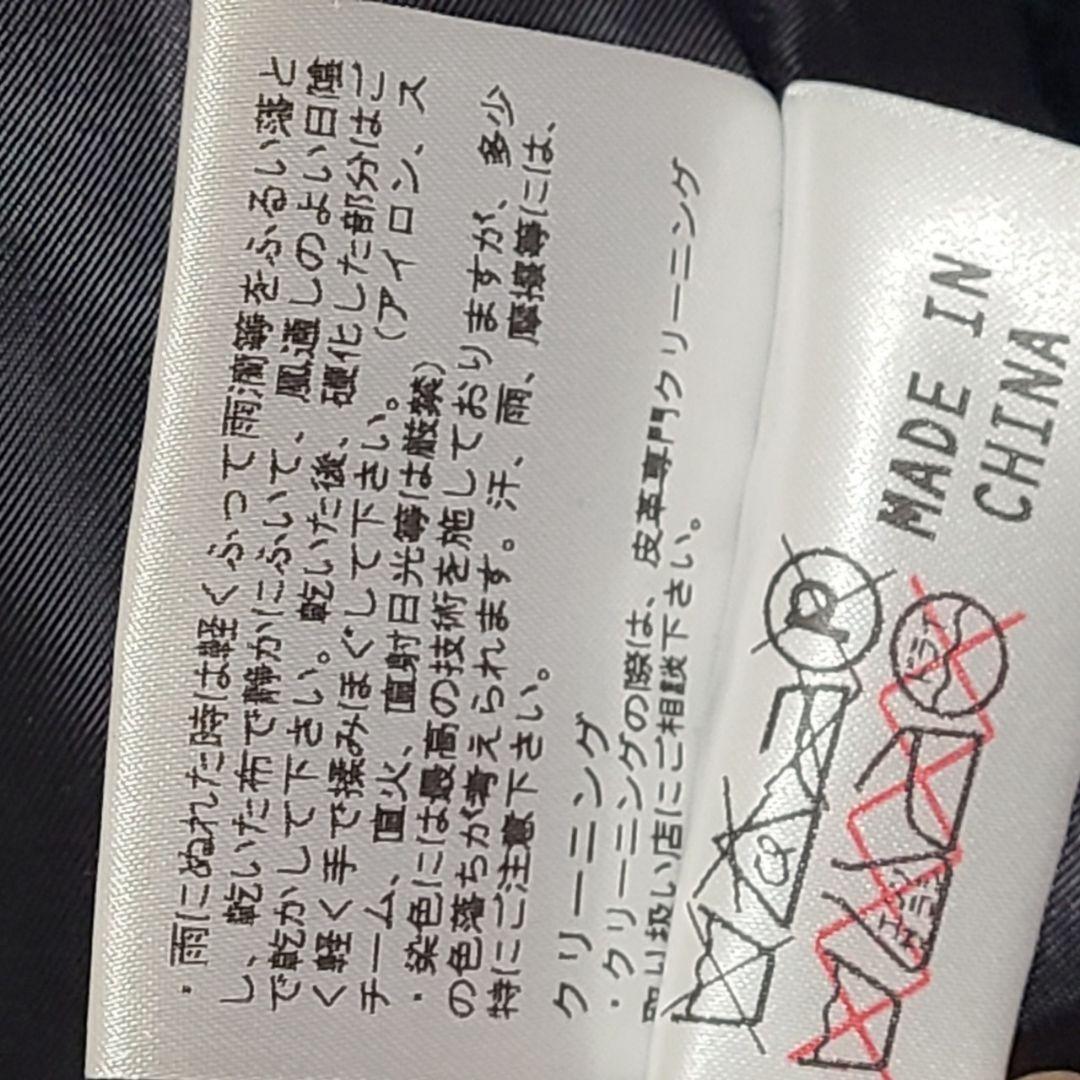 ・雨にぬれた時は軽くふって雨滴等をふるい落と
し、乾いた布で静かにふいて、風通しのよい日陰
で乾かして下さい。乾いた後、硬化した部分はご
く軽く手で揉みほぐして下さい。(アイロン、ス
チーム、直火、直射日光等は厳禁)
・染色には最高の技術を施しておりますが、多少
の色落ちが考えられます。汗、雨、摩擦等には、
特にご注意下さい。
クリーニング
・クリーニングの際は、皮革専門クリーニング
取り扱い店にご相談下さい。
P
ドライ
エンソ
MADE IN
CHINA